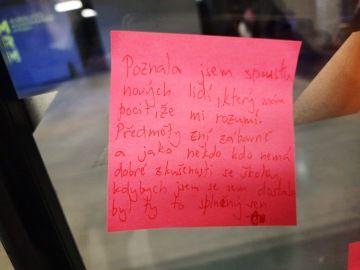 Poznala jsem spoustu
nových lidí, který mám
pocit, že mi rozumí.
Předměty zní zábavně
a jako někdo kdo nemá
dobré zkušenosti se školou,
kdybych jsem se sem dostala
byl by to splněný sen